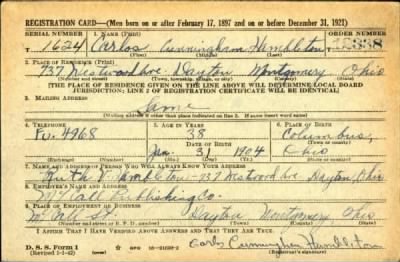 REGISTRATION CARD—(Men born on or after February 17, 1897 and on or before December 31, 1921)
SERIAL NUMBER 1. NAME (Print) ORDER NUMBER
1624 Carlos Cunningham Hambleton
(First) (Middle) (Last)
2. PLACE OF RESIDENCE (Print)
737 Westwood Ave Dayton Montgomery Ohio
(Number and street) (Town, township, village, or city) (County) (State)
[THE PLACE OF RESIDENCE GIVEN ON THE LINE ABOVE WILL DETERMINE LOCAL BOARD
JURISDICTION; LINE 2 OF REGISTRATION CERTIFICATE WILL BE IDENTICAL]
3. MAILING ADDRESS
Same
[Mailing address if other than place indicated on line 2. If same insert word same]
4. TELEPHONE 5. AGE IN YEARS 6. PLACE OF BIRTH
Fu. 4968 38 Columbus,
DATE OF BIRTH
31 1904 Ohio
(Mo.) (Day) (Yr.)
7. NAME AND ADDRESS OF PERSON WHO WILL ALWAYS KNOW YOUR ADDRESS
Ruth V. Hambleton - 737 Westwood Ave. Dayton, Ohio
8. EMPLOYER'S NAME AND ADDRESS
McCall Publishing Co.
9. PLACE OF EMPLOYMENT OR BUSINESS
McCall St. Dayton Montgomery, Ohio
(Number and street or R. F. D. number) (Town) (County) (State)
I AFFIRM THAT I HAVE VERIFIED ABOVE ANSWERS AND THAT THEY ARE TRUE.
D. S. S. Form 1
(Revised 1-1-42) Carlos Cunningham Hambleton